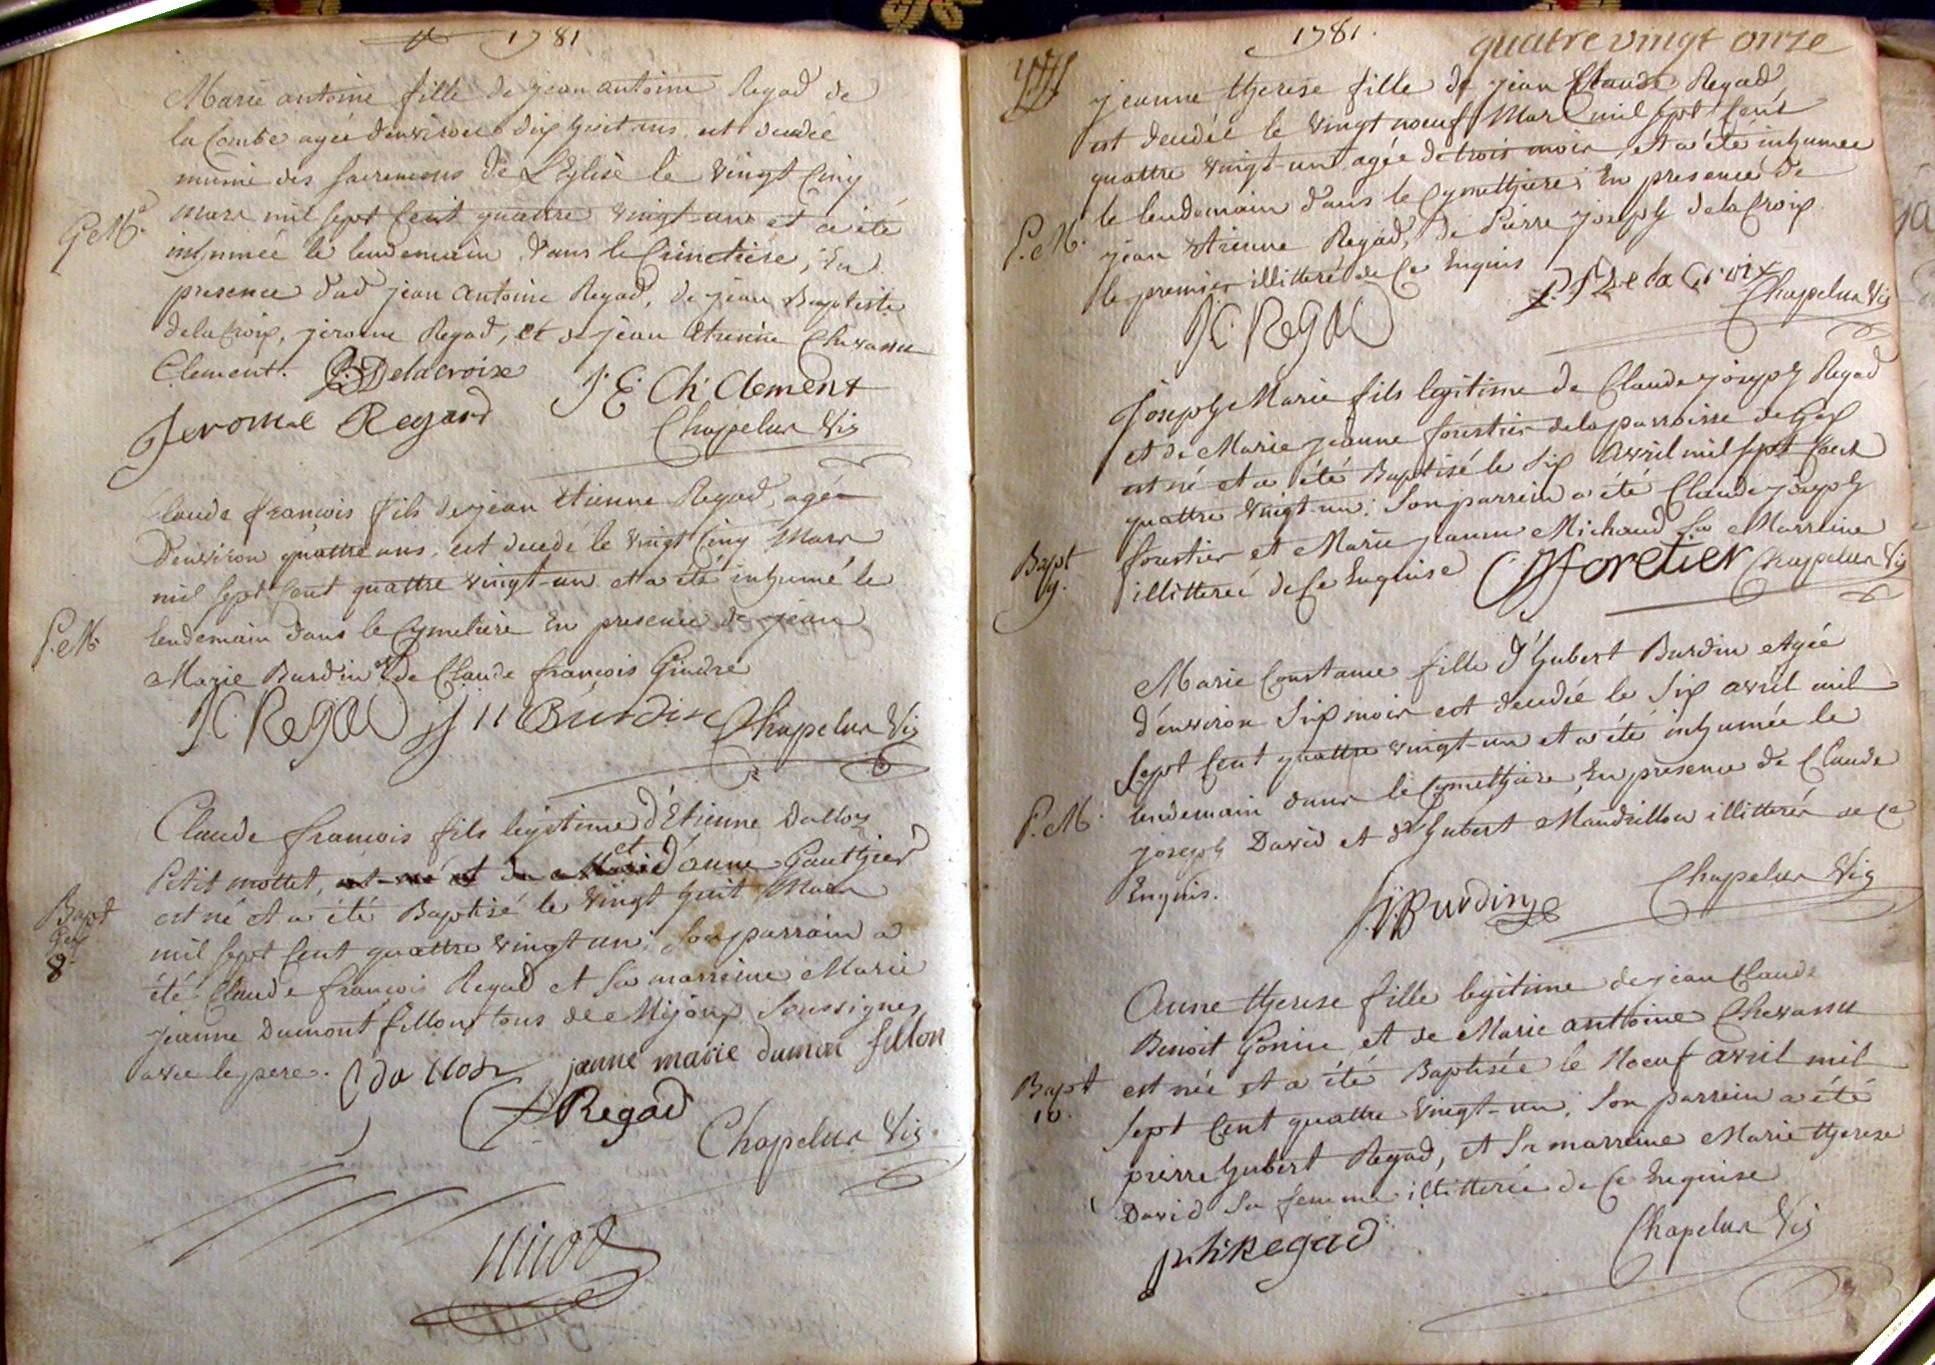 1781
Marie antoine fille de jean antoine Regad de
la Combe agée denviron dix huit ans est decedée
munie des sacremens de L'Eglise le vingt Cinq
Mars mil sept Cent quattre vingt-un et a été
inhumée le lendemain dans le Cimetiere, En
presence dud jean antoine Regad, de jean Baptiste
delaCroix, jerome Regad, et de jean Etienne Chevassu
Clement. Delacroix J. E. Ch. Clement
Jeromme Regard Chapelux Vic
Claude françois fils de jean Etienne Regad, agée
D'environ quattre ans, est decedé le vingt Cinq Mars
mil sept Cent quattre vingt-un et a été inhumé le
P. M.
lendemain dans le Cymetiere En presence de jean
Marie Burdin et de Claude françois Grudre
Regad Burdin Chapelux Vic
Claude francois fils legitime d'Etienne Dalloz
Petit mottet, et d'anne Gauthier
est né et a été Baptisé le vingt huit Mars
Bapt
8
mil sept Cent quattre vingt un; Son parrain a
été Claude françois Regad et Sa marreine Marie
jeanne Dumont fillon, tous de Mijoux Soussignes
avec le pere. Dalloz jeanne marie dumon fillon
Regad
Chapelux Vic
1781.
quatre vingt onze
jeanne therese fille de jean Claude Regad
est decedée le vingt noeuf Mars mil sept Cent
quattre vingt-un agée de trois mois, et a été inhumee
le lendemain dans le Cymethiere; En presence de
P. M.
jean Etienne Regad, de Pierre joseph delaCroix
le premier illitteré de Ce Enquis P. J. DelaCroix
Regad Chapelux Vic
Joseph Marie fils legitime de Claude joseph Regad
et de Marie jeanne fourtier de la parroisse de Gex
est né et a été Baptisé le Six Avril mil sept Cent
quattre vingt-un; Son parrein a été Claude joseph
Bapt
9.
fourtier et Marie jeanne Michaud Sa Marreine
illitterée de Ce Enquise foretier Chapelux Vic
Marie Constance fille d'hubert Burdin agée
d'environ Six mois est decedée le Six avril mil
Sept Cent quattre vingt-un et a été inhumée le
P. M.
lendemain dans le Cymethiere, En presence de Claude
joseph David et d'hubert Mandrillon illitterés de Ce
Enquis. Burdin Chapelux Vic
Anne therese fille legitime de jean Claude
Benoit Gonin, et de Marie anthoine Chevassu
Bapt
10.
est née et a été Baptisée le Noeuf avril mil
Sept Cent quattre vingt-un; Son parrein a été
pierre hubert Regad, et Sa marreine Marie therese
David Sa femme illitterée de Ce Enquise
p. h. Regad Chapelux Vic